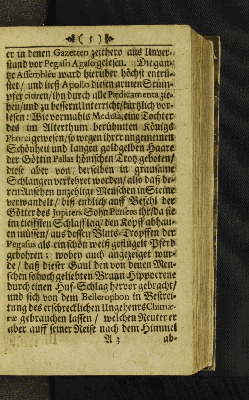 ( 5 )
er in denen Gazetten zeithero aus Unver-
stand vor Pegasi Agaso gelesen. Die gan-
tze Assemblée ward hierüber höchst entrü-
stet / und ließ Apollo diesen armen Stüm-
per citiren / ihn durch alle Prædicamenta zie-
hen / und zu bessern Unterricht / kürtzlich vor-
lesen: Wie vormahls Medusa, eine Tochter
des im Alterthum berühmten Königs
Phorci gewesen / so wegen ihrer ungemeinen
Schönheit und langen goldgelben Haare
der Göttin Pallas hönischen Trotz geboten /
diese aber von derselben in grausame
Schlangen verkehret worden / also daß de-
ren Ansehen unzehlige Menschen in Steine
verwandelt / biß endlich auff Befehl der
Götter des Jupiters Sohn Perseus ihr / da sie
im tieffsten Schlaff lag / den Kopff abhau-
en müssen / aus dessen Bluts-Tropffen der
Pegasus als ein schön weiß geflügelt Pferd
gebohren; wobey auch angezeiget wur-
de / daß dieser Gaul den von denen Men-
schen so hoch geliebten Brunn Hippocrene
durch einen Huf-Schlag hervor gebracht /
und sich von dem Bellerophon in Bestrei-
tung des erschrecklichen Ungeheures Chimæ-
ræ gebrauchen lassen / welchen Reuter er
aber auff seiner Reise nach dem Himmel
A 3 ab-